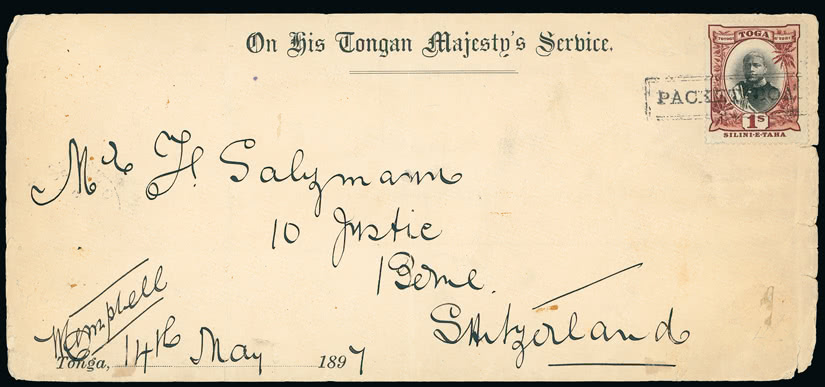 On His Tongan Majesty's Service.
TOGA
1s
SILINI-E-TAHA
PACKET
Mr F. Salzmann
10 Justic
Berne.
Switzerland
Tonga, 14th May 1897